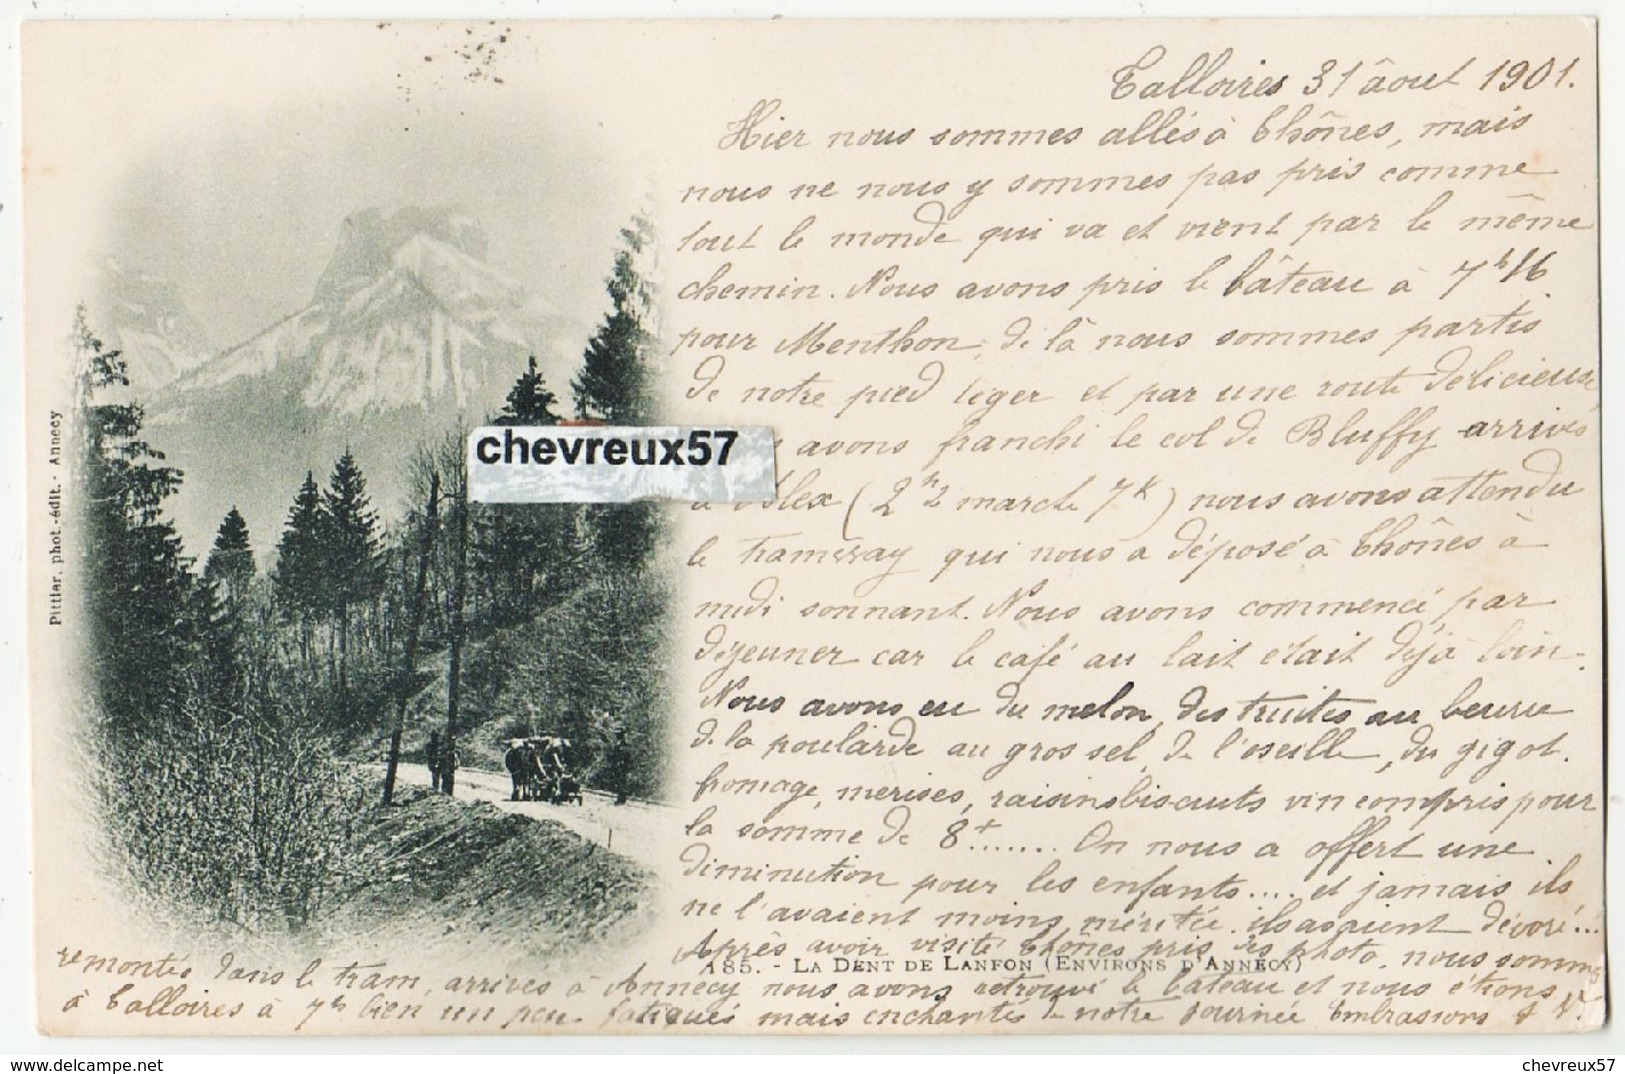 Talloires 31 âout 1901.
Hier nous sommes allés à Thônes, mais
nous ne nous y sommes pas pris comme
tout le monde qui va et vient par le même
chemin. Nous avons pris le bâteau à 7h
pour Menthon, de là nous sommes partis
de notre pied léger et par une route délicieuse
avons franchi le col de Bluffy arrivés
à Alex (2h 2 marche 7k) nous avons attendu
le tramway qui nous a déposé à Thônes à
midi sonnant. Nous avons commencé par
déjeuner car le café au lait était déjà loin.
Nous avons eu du melon, des truites au beurre
de la poularde au gros sel, de l'oseille, du gigot.
fromage, merises, raisins biscuits vin compris pour
la somme de 8+....... On nous a offert une
diminution pour les enfants.... et jamais ils
ne l'avaient moins méritée. ils avaient dévoré...
Après avoir visité Thônes pris des photo. nous sommes
remontés dans le tram, arrivés à Annecy nous avons retrouvé le bateau et nous étions
à Talloires à 7h bien un peu fatigués mais enchantés de notre journée Embrassons
A 85. - LA DENT DE LANFON (ENVIRONS D'ANNECY)
Pittier, phot.-édit. - Annecy
chevreux57
chevreux57